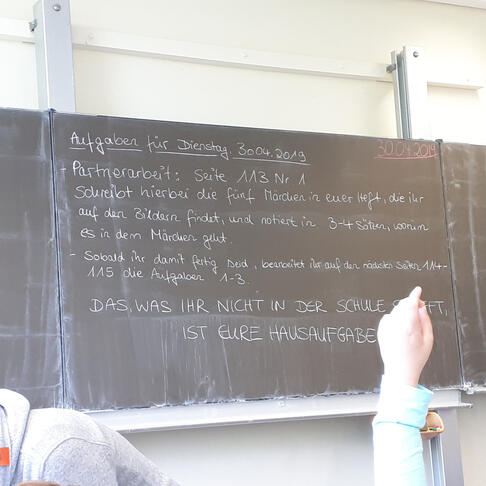 Aufgaben für Dienstag. 30.04.2019
30.04.2019
- Partnerarbeit: Seite 113 Nr 1
Schreibt hierbei die fünf Märchen in euer Heft, die ihr
auf den Bildern findet, und notiert in 3-4 Sätzen, worum
es in dem Märchen geht.
- Sobald ihr damit fertig seid, bearbeitet ihr auf den nächsten Seiten 114-
115 die Aufgaben 1-3.
DAS, WAS IHR NICHT IN DER SCHULE
IST EURE HAUSAUFGABE